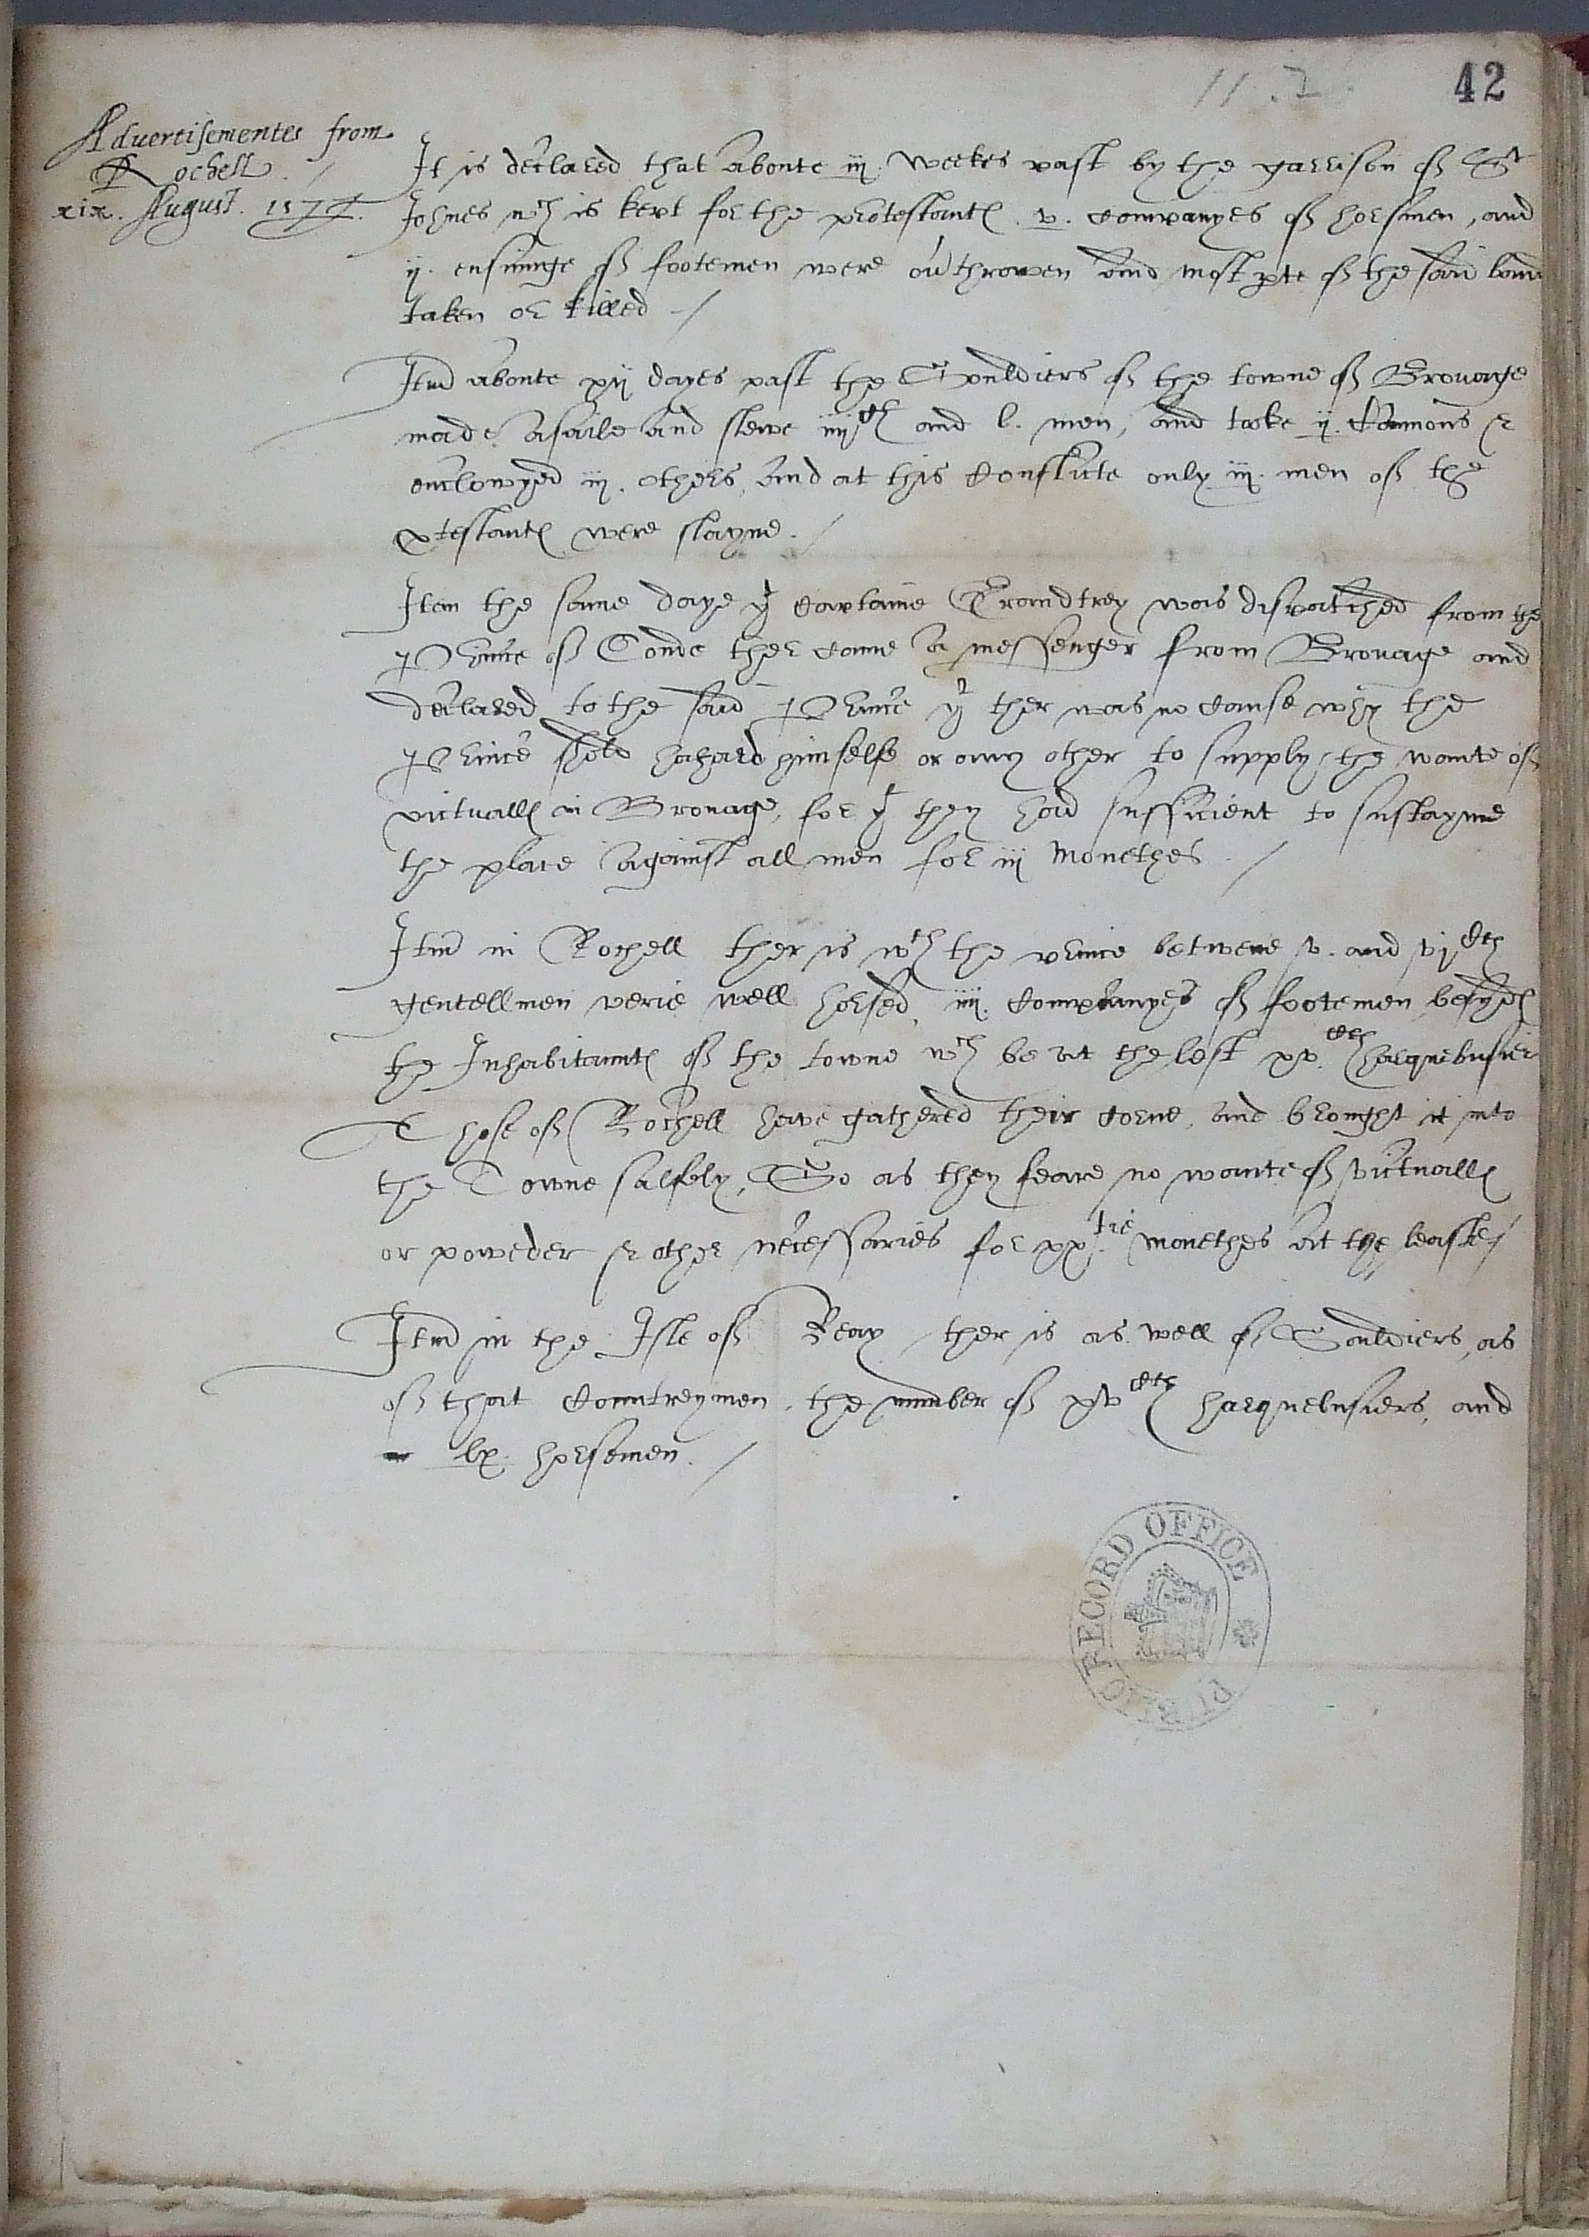 11.7.
42
Advertisementes from
Rochell. /
xix. August. 1577.
It is declared that aboute iij. weekes past by the garrison of St
Johnes wch is kept for the protestantes .v. companyes of horsmen, and
ij. ensinnge of footemen were ou'throwen and most pte of the said
taken or killed /
Itm aboute xij dayes past the Souldiers of the towne of Brouage
made a saile and slewe iiijC and l. men, and tooke ij. Cannons &
enclowyed iij. others, and at this conflicte only iij. men of the
ptestantes were slayne. /
Item the same daye yt Captaine was dispatched from the
Prince of Conde ther came a messenger from Brouage and
declared to the said Prince yt ther was no cause why the
Prince shold hazard himselfe or any other to supply the wante of
victualls in Brouage, for yt they had sufficient to sustayne
the place against all men for iij Monethes. /
Itm in Rochell ther is wth the prince betwene v. and vjCth
gentellmen verie well horsed, iiij. companyes of footemen besydes
the Inhabitantes of the towne wch be at the lest xv.Cth harquebusier
Those of Rochell have gathered their corne, and brought it into
the Towne salfely, So as they feare no wante of victualls
or powder & other necessaries for xx.tie monethes at the leaste /
Itm in the Isle of Reay ther is as well of Souldiers, as
of that Countreymen, the number of xvCth harquebusiers, and
lx. horsemen. /
PUBLIC RECORD OFFICE